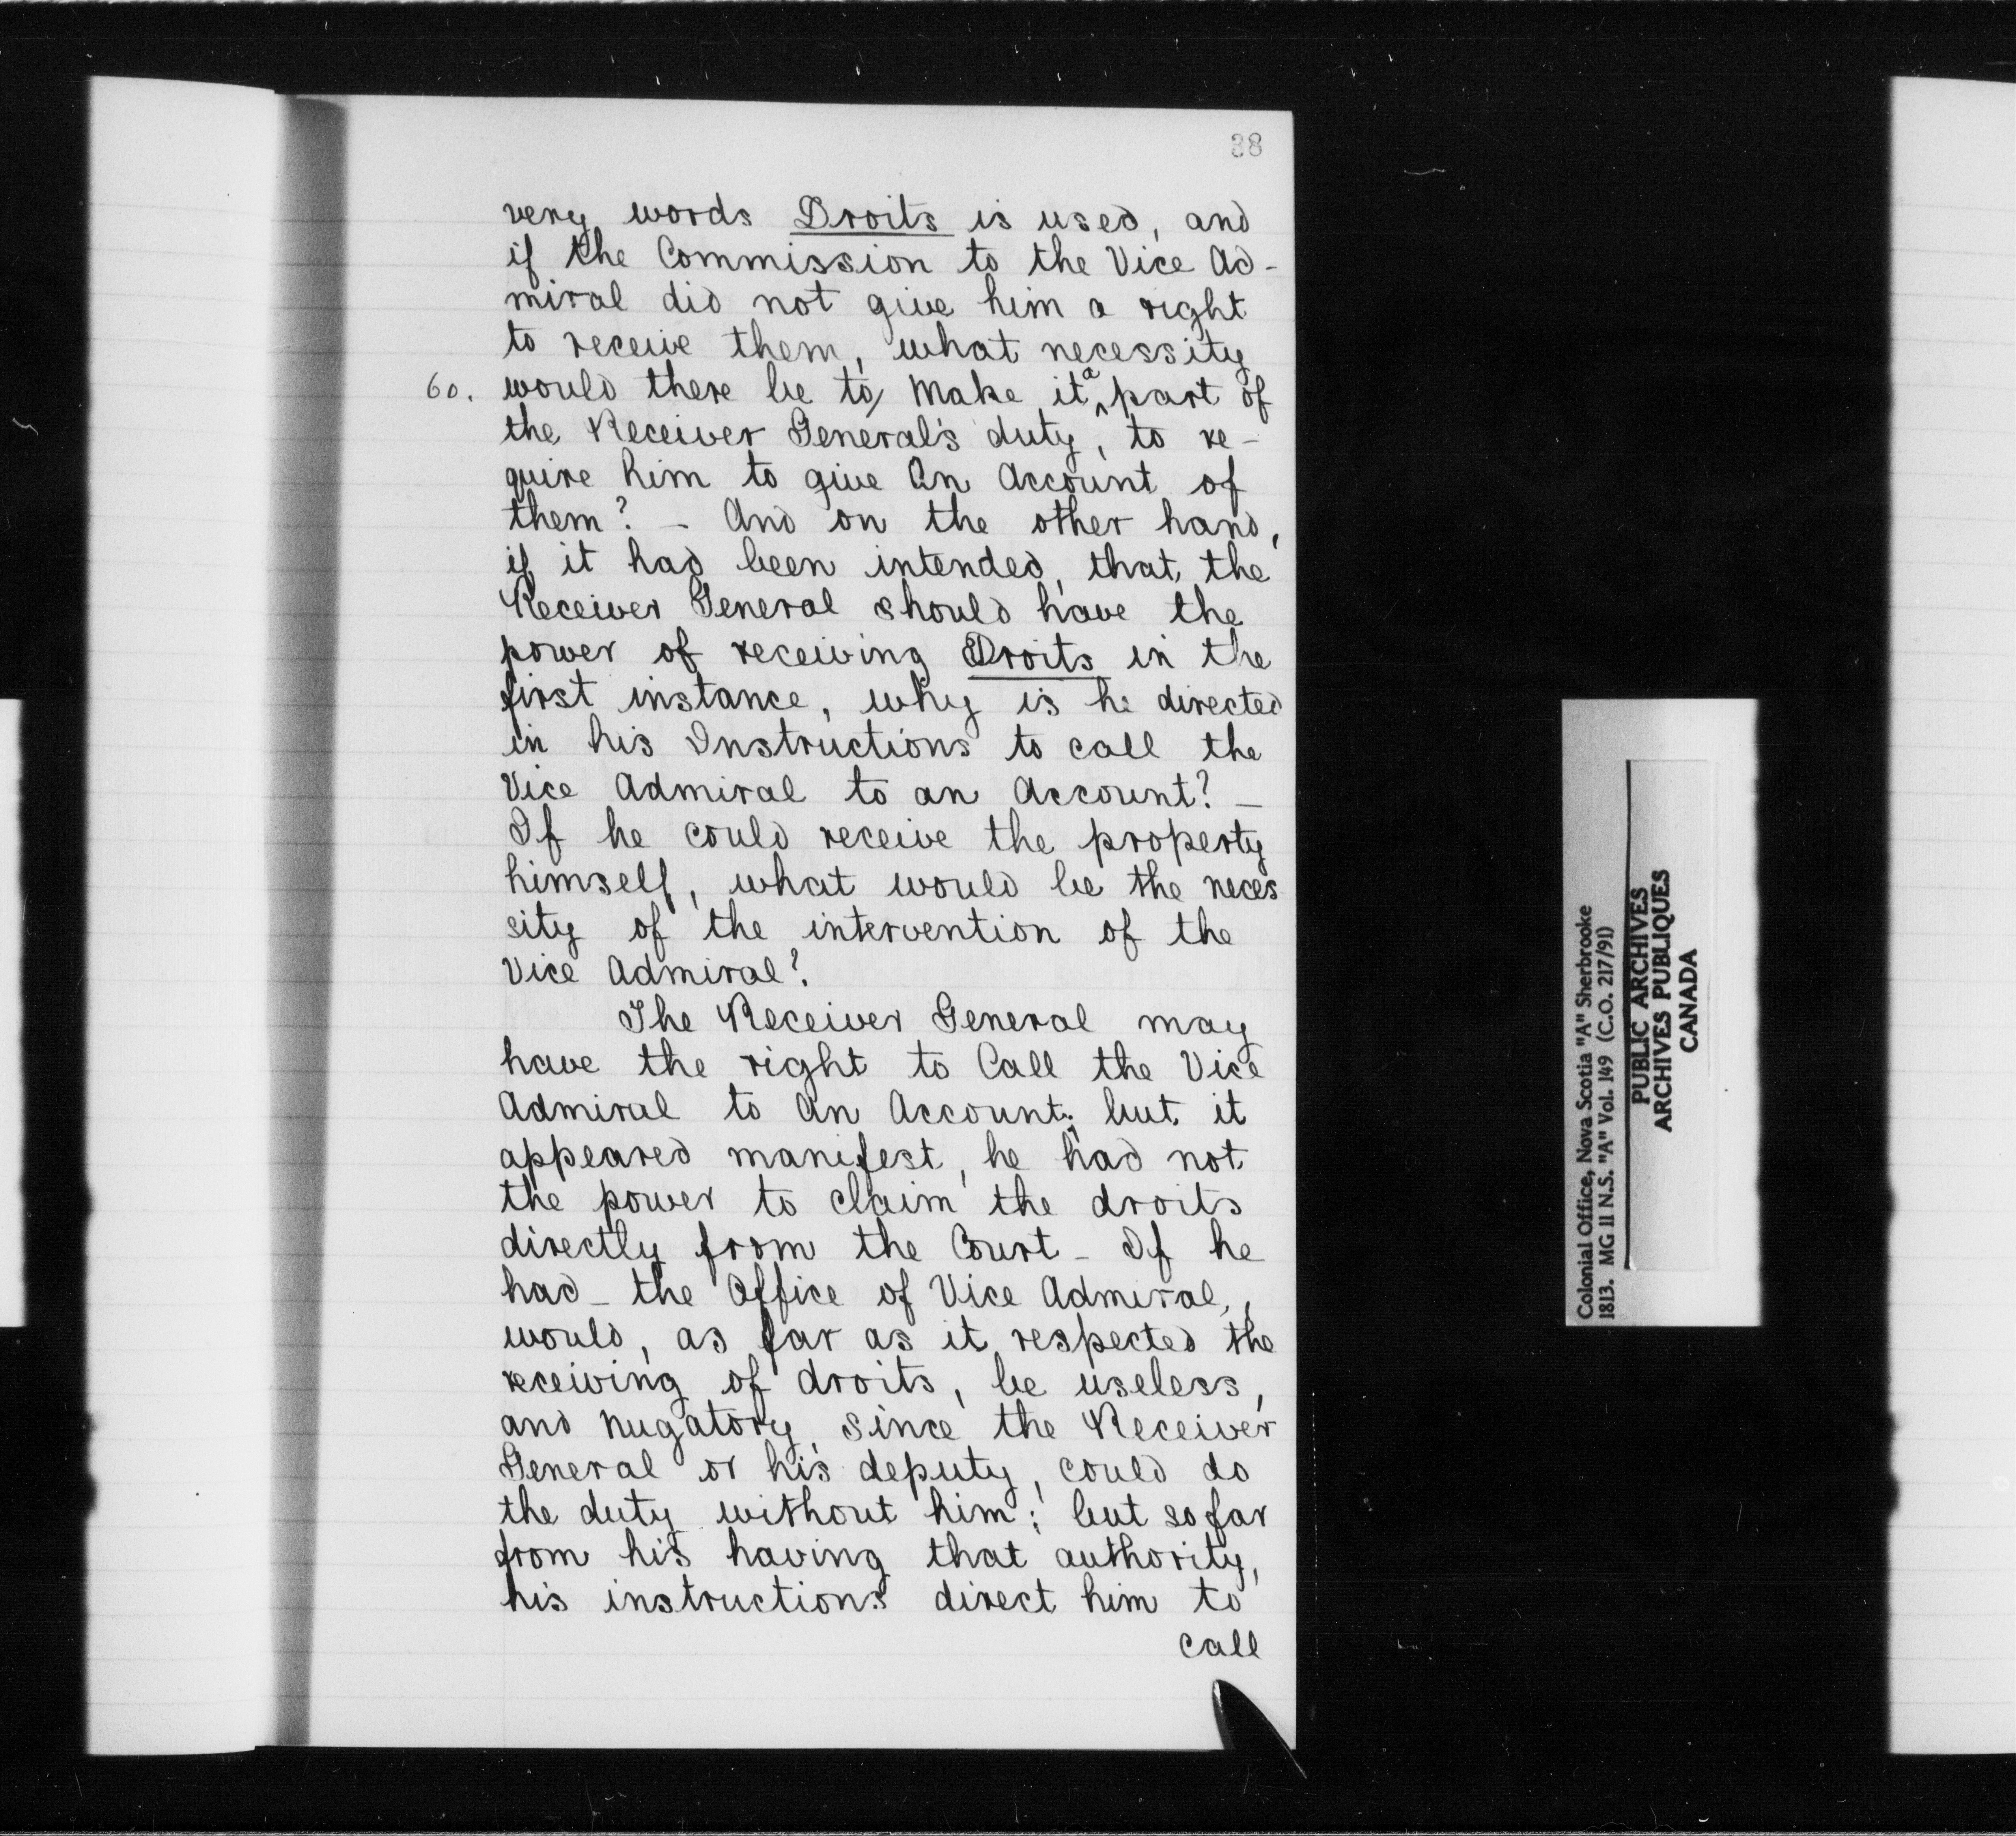 38
very words Droits is used, and
if the Commission to the Vice Ad-
miral did not give him a right
to receive them, what necessity
60. would there be to/ Make it a part of
the Receiver General's duty, to re-
quire him to give An Account of
them? - And on the other hand,
if it had been intended, that, the
Receiver General should have the
power of receiving Droits in the
first instance, why is he directed
in his Instructions to call the
Vice Admiral to an Account? -
If he could receive the property
himself, what would be the neces
sity of the intervention of the
Vice Admiral?
The Receiver General may
have the right to Call the Vice
Admiral to An Account; but it
appeared manifest, he had not
the power to claim the droits
directly from the Court - If he
had - the Office of Vice Admiral,
would, as far as it respected the
receiving of droits, be useless,
and nugatory, since the Receiver
General or his deputy, could do
the duty without him; but so far
from his having that authority,
his instructions direct him to
call
Colonial Office, Nova Scotia "A" Sherbrooke
1813. MG 11 N.S. "A" Vol. 149 (C.O. 217/91)
PUBLIC ARCHIVES
ARCHIVES PUBLIQUES
CANADA